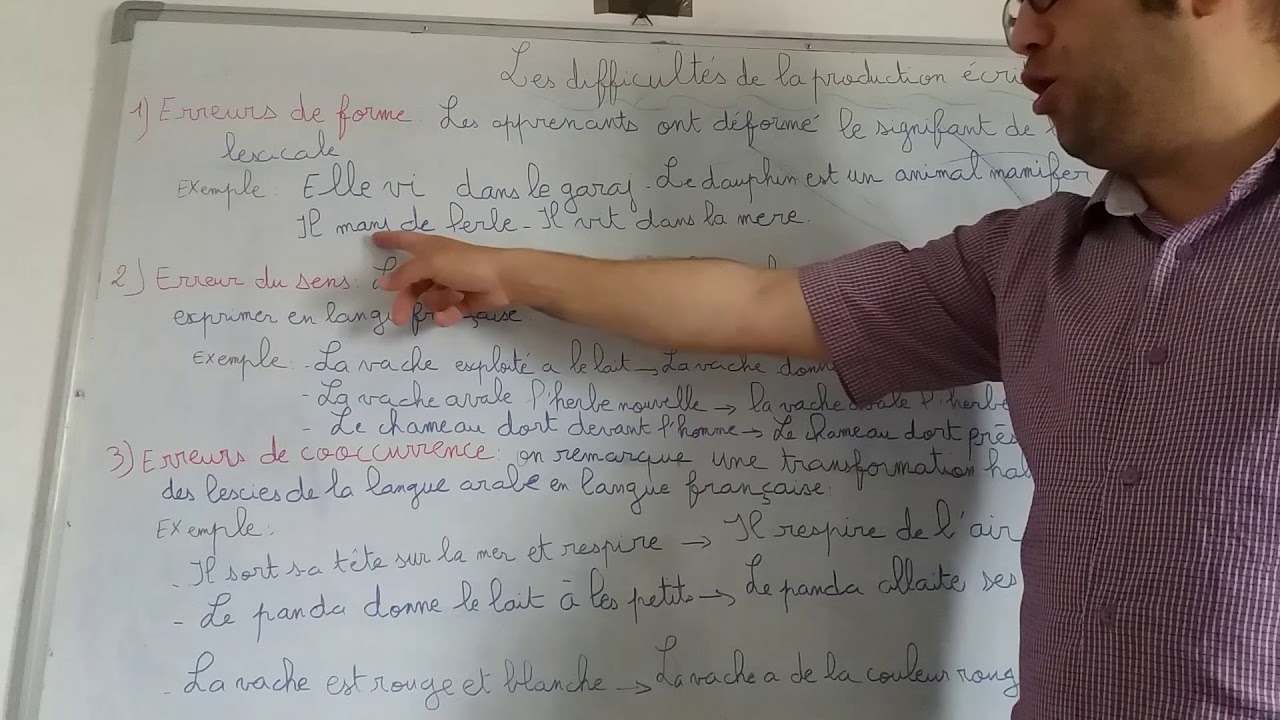 Les difficultés de la production écri
1) Erreurs de forme : Les apprenants ont déformé le signifant de
lescicale
Exemple : Elle vi dans le garaj - Le dauphin est un animal manifer
Il manj de l'erle - Il vit dans la mere.
2) Erreur du sens :
exprimer en langue française
Exemple : - La vache exploité a le lait → La vache donne
- La vache avale l'herbe nouvelle → la vache avale l'herbe
- Le chameau dort devant l'homme → Le chameau dort près
3) Erreurs de cooccurrence : on remarque une transformation
des lescies de la langue arabe en langue française :
Exemple :
- Il sort sa tête sur la mer et respire → Il respire de l'air
- Le panda donne le lait à les petits → Le panda allaite ses
- La vache est rouge et blanche → La vache a de la couleur roug